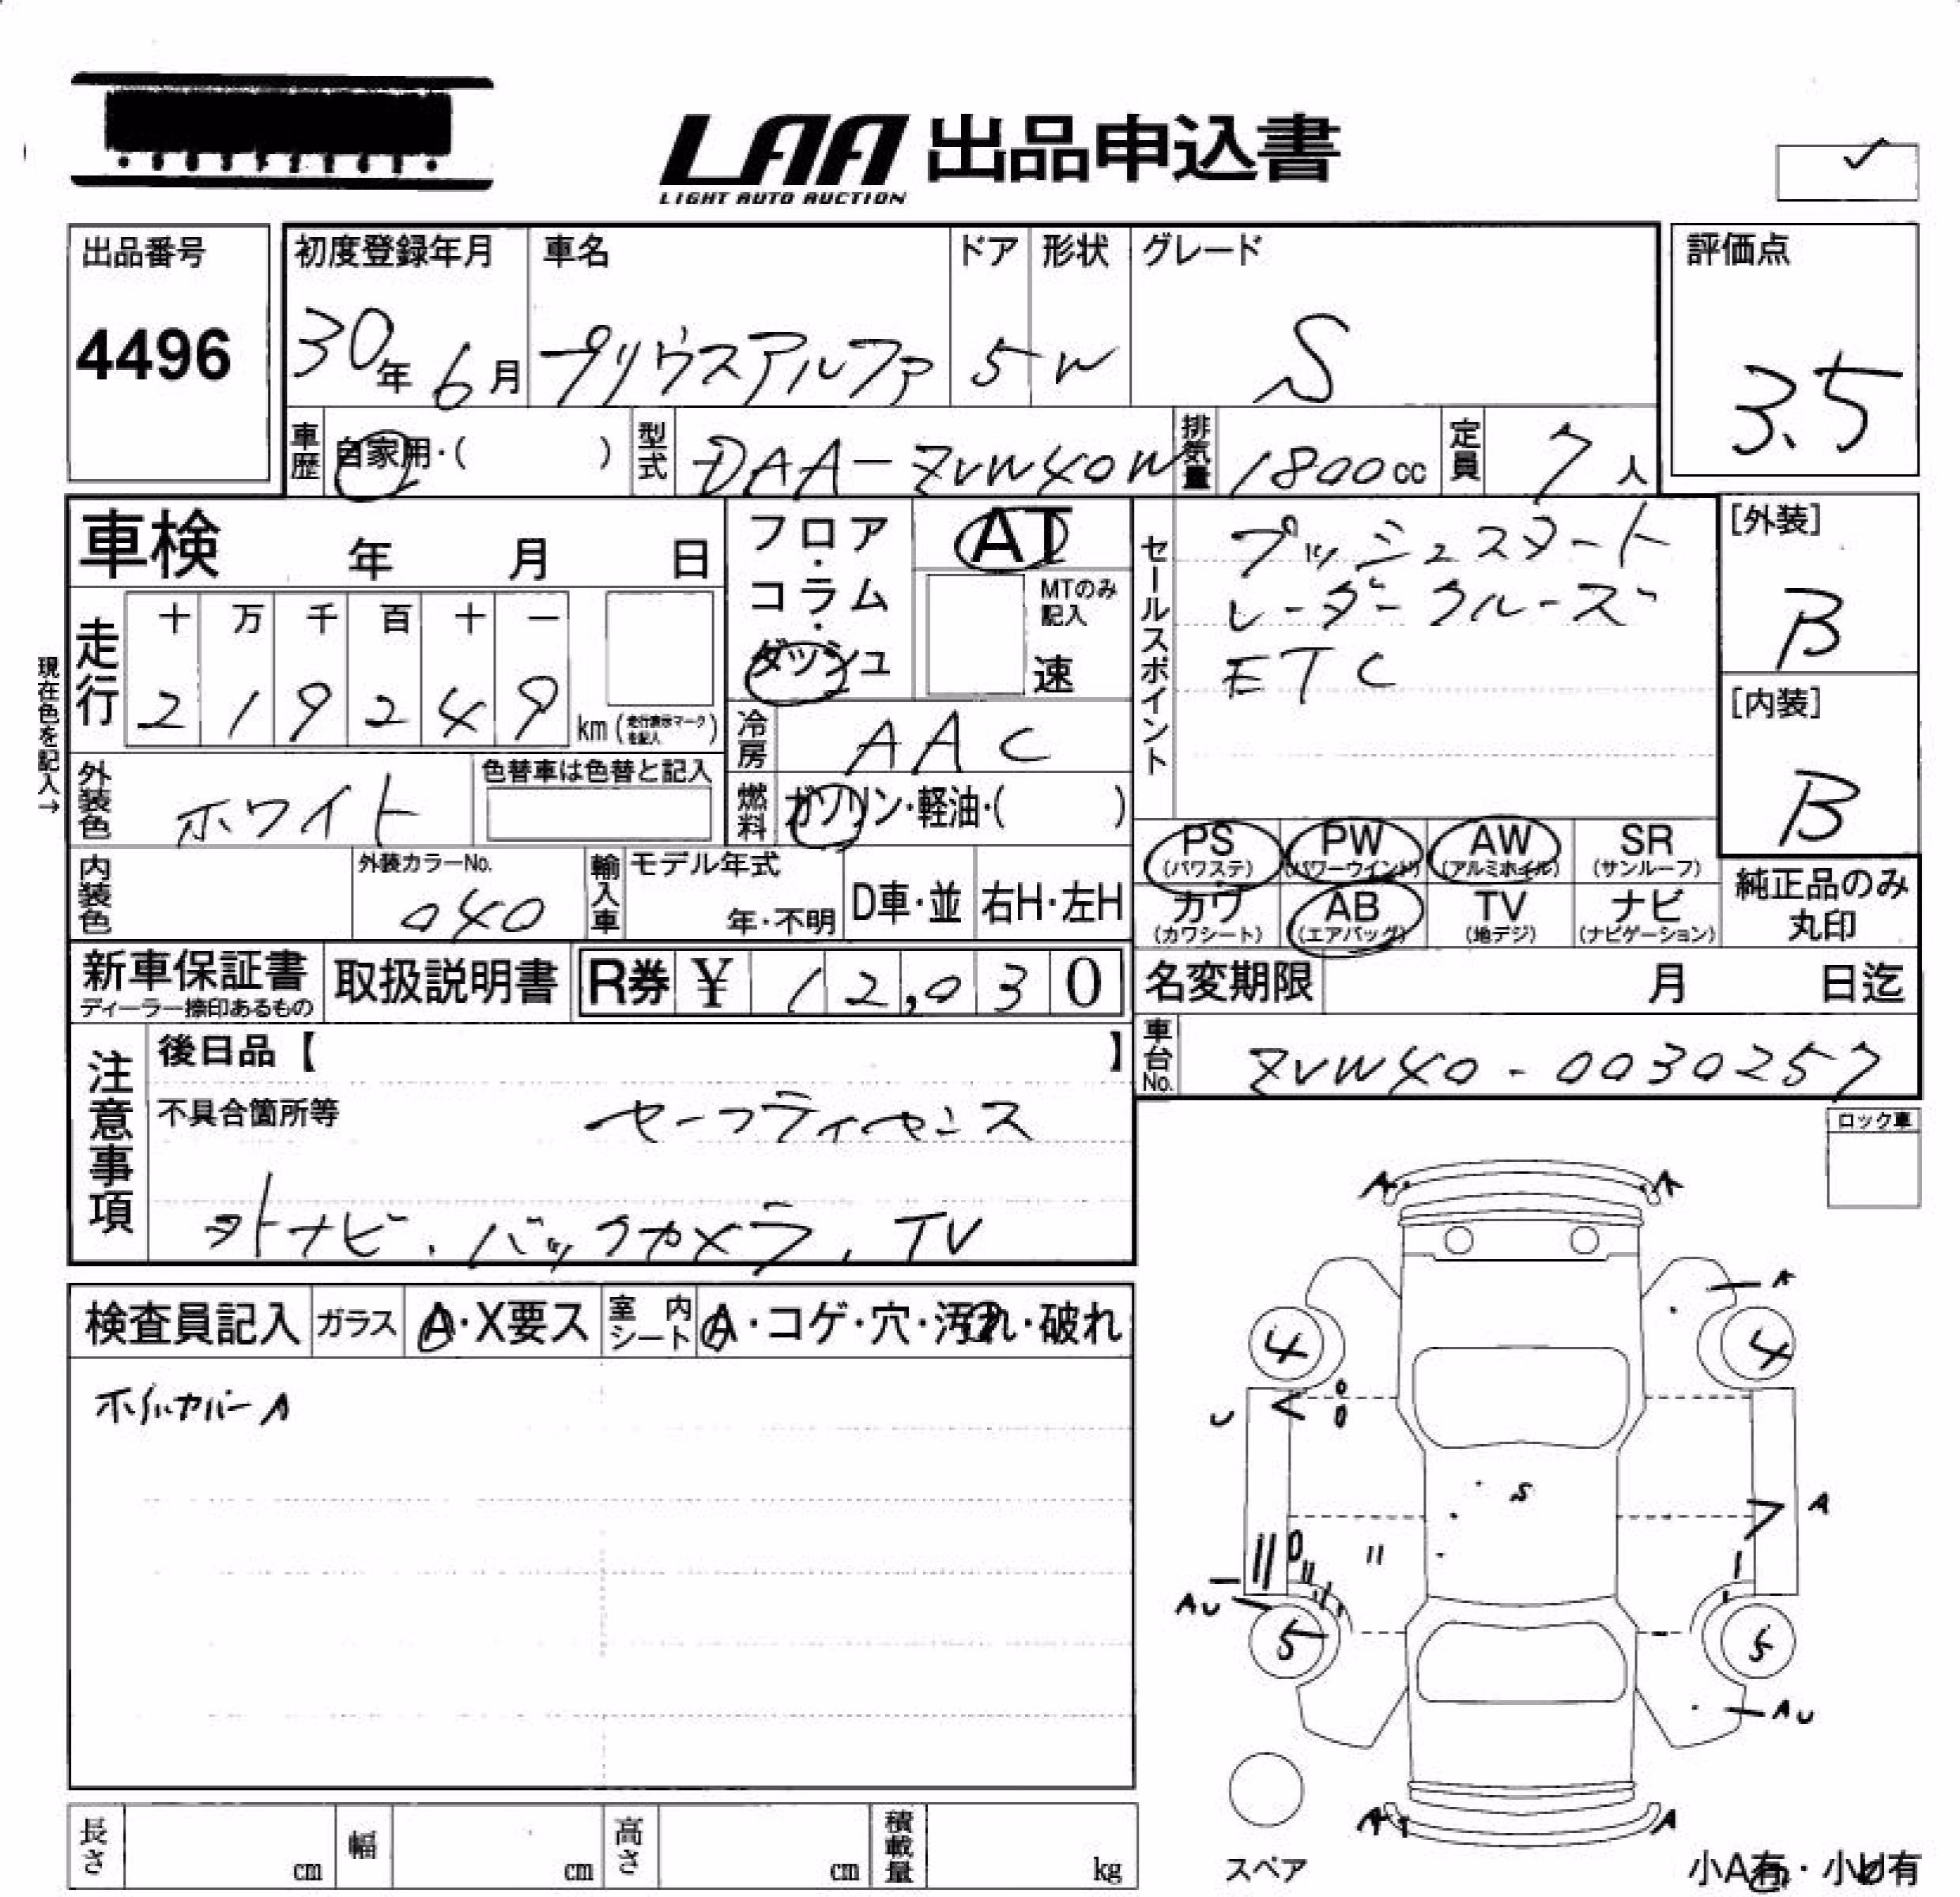 LAA 出品申込書
LIGHT AUTO AUCTION
出品番号
4496
初度登録年月
30年 6月
車名
プリウスアルファ
ドア
5
形状
W
グレード
S
評価点
3.5
車歴 自家用・( )
型式 DAA-ZVW40W
排気量 1800cc
定員 7人
車検 年 月 日
フロア・コラム・ダッシュ
AT
MTのみ記入
速
セールスポイント
プッシュスタート
レーダークルーズ
ETC
[外装]
B
[内装]
B
現在色を記入→
走行
十 万 千 百 十 一
2 1 9 2 4 9 km (走行表示マークを記入)
冷房 AAC
外装色 ホワイト
色替車は色替と記入
燃料 ガソリン・軽油・( )
PS (パワステ) PW (パワーウインド) AW (アルミホイル) SR (サンルーフ)
カワ (カワシート) AB (エアバッグ) TV (地デジ) ナビ (ナビゲーション)
純正品のみ丸印
内装色
外装カラーNo.
040
輸入車
モデル年式
年・不明
D車・並 右H・左H
新車保証書
ディーラー捺印あるもの
取扱説明書
R券 ¥ 12,030
名変期限 月 日迄
車台No. ZVW40-0030257
注意事項
後日品【 】
不具合箇所等 セーフティセンス
外ナビ.バックカメラ,TV
ロック車
検査員記入 ガラス A・X要ス 室内シート A・コゲ・穴・汚れ・破れ
A A
A
4 4
U
S
A
AU
5 5
AU
A A
スペア
小A有・小U有
長さ cm 幅 cm 高さ cm 積載量 kg